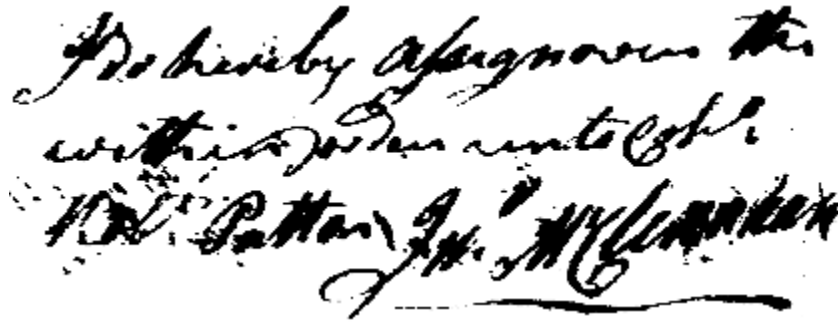 I do hereby assign over the
within order unto Colo.
Patton Jno. McClenachan